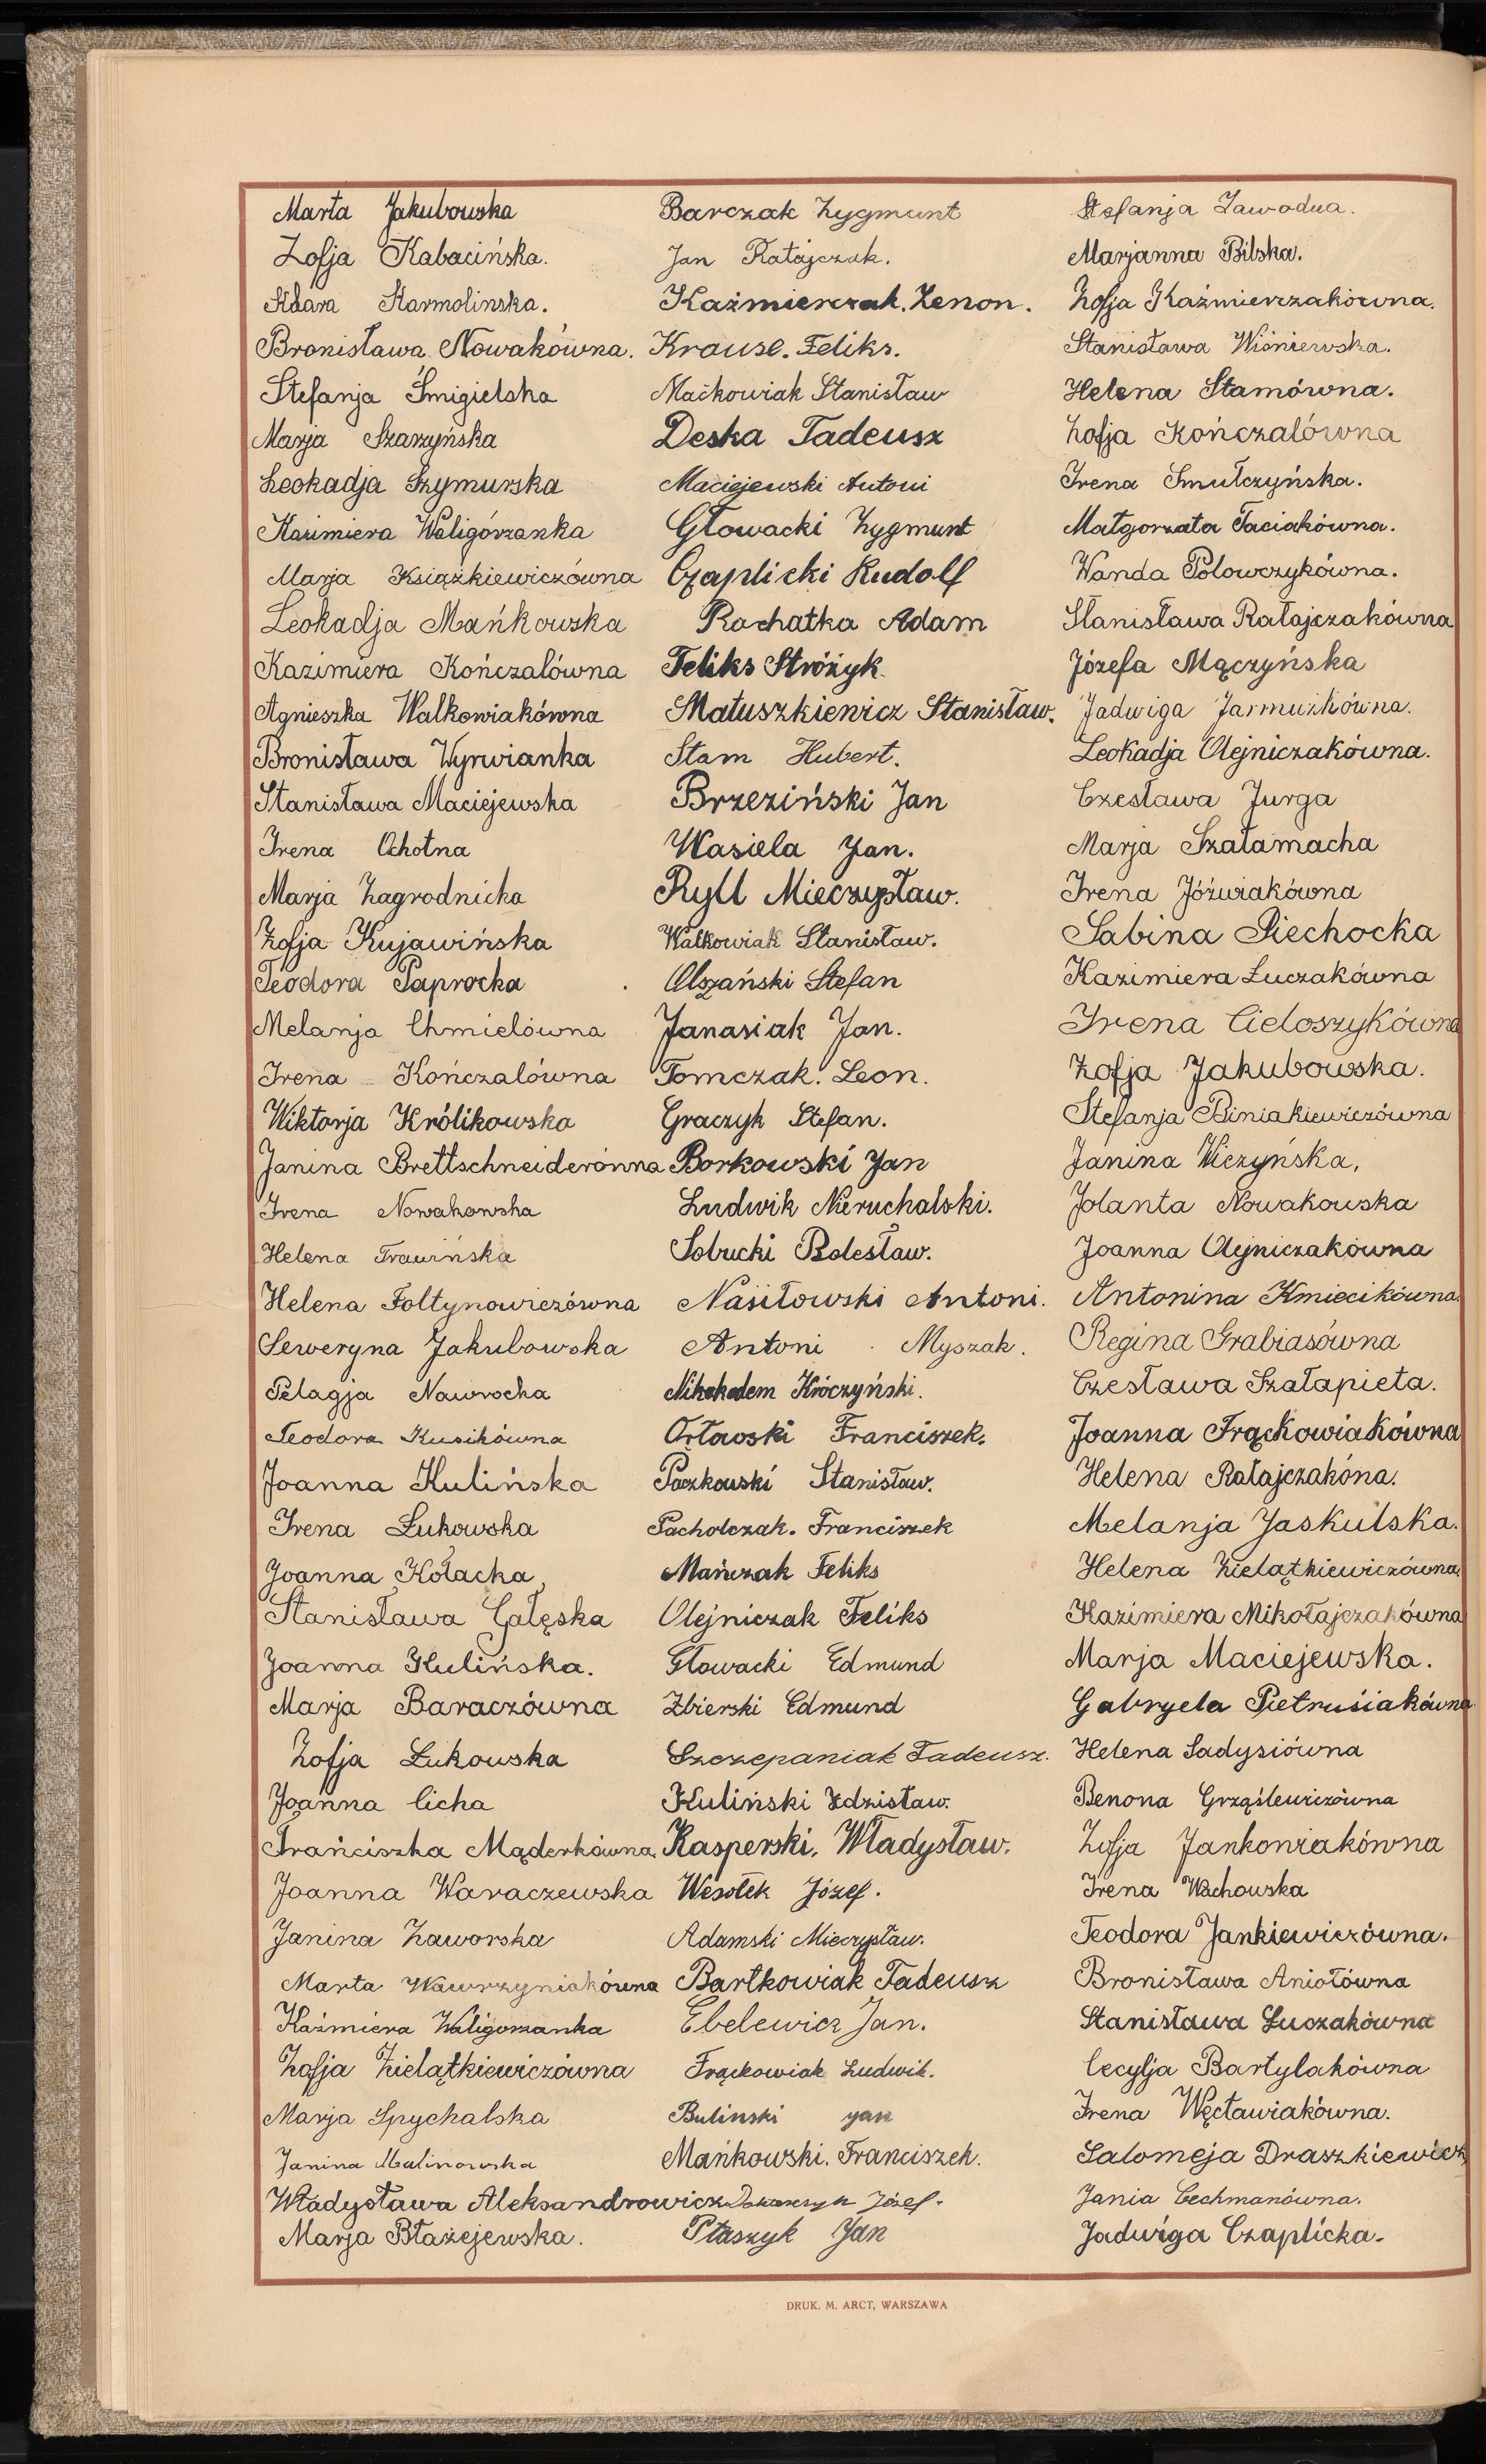 Marta Jakubowska
Zofja Kabacińska.
Klara Karmolinska.
Bronisława Nowakówna.
Stefanja Śmigielska
Marja Szarzyńska
Leokadja Szymurska
Kazimiera Waligórzanka
Marja Książkiewiczówna
Leokadja Mańkowska
Kazimiera Kończalówna
Agnieszka Walkowiakówna
Bronisława Wyrwianka
Stanisława Maciejewska
Irena Ochotna
Marja Zagrodnicka
Zofja Kujawińska
Teodora Paprocka
Melanja Chmielówna
Irena Kończalówna
Wiktorja Królikowska
Janina Brettschneiderónna
Irena Nowakowska
Helena Trawińska
Helena Foltynowiczówna
Seweryna Jakubowska
Pelagja Nawrocka
Teodora Kusikówna
Joanna Kulińska
Irena Łukowska
Joanna Kołacka
Stanisława Gałęska
Joanna Kulińska.
Marja Baraczówna
Zofja Łukowska
Joanna Cicha
Franciszka Mąderkówna
Joanna Waraczewska
Janina Zaworska
Marta Wawrzyniakówna
Kaźmiera Waligorzanka
Zofja Zielątkiewiczówna
Marja Spychalska
Janina Malinowska
Władysława Aleksandrowicz
Marja Błażejewska.
Barczak Zygmunt
Jan Ratajczak.
Kaźmierczak. Zenon.
Krause. Feliks.
Maćkowiak Stanisław
Deska Tadeusz
Maciejewski Antoni
Głowacki Zygmunt
Czaplicki Rudolf
Rachatka Adam
Feliks Stróżyk.
Matuszkiewicz Stanisław.
Stam Hubert.
Brzeziński Jan
Wasiela Jan.
Ryll Mieczysław.
Walkowiak Stanisław.
Olszański Stefan
Janasiak Jan.
Tomczak. Leon.
Graczyk Stefan.
Borkowski Jan
Ludwik Nieruchalski.
Sobucki Bolesław.
Nasiłowski Antoni.
Antoni Myszak.
Króczyński.
Orłowski Franciszek.
Paczkowski Stanisław.
Pacholczak. Franciszek
Mańczak Feliks
Olejniczak Feliks
Głowacki Edmund
Zbierski Edmund
Szczepaniak Tadeusz.
Kuliński Zdzisław.
Kasperski. Władysław.
Wesołek Józef.
Adamski Mieczysław.
Bartkowiak Tadeusz
Ebelewicz Jan.
Frąckowiak Ludwik.
Bulinski Jan
Mańkowski. Franciszek.
Józef.
Ptaszyk Jan
Stefanja Zawodna.
Marjanna Bilska.
Zofja Kaźmierczakówna.
Stanisława Wiśniewska.
Helena Stamówna.
Zofja Kończalówna
Irena Smulczyńska.
Małgorzata Taciakówna.
Wanda Polowczykówna.
Stanisława Ratajczakówna
Józefa Mączyńska
Jadwiga Jarmużkówna.
Leokadja Olejniczakówna.
Czesława Jurga
Marja Szałamacha
Irena Jóźwiakówna
Sabina Piechocka
Kazimiera Łuczakówna
Irena Cieloszykówna
Zofja Jakubowska.
Stefanja Biniakiewiczówna
Janina Wiczyńska,
Jolanta Nowakowska
Joanna Olejniczakówna
Antonina Kmiecikówna.
Regina Grabiasówna
Czesława Szałapieta.
Joanna Frąckowiakówna
Helena Ratajczakóna.
Melanja Jaskulska.
Helena Zielątkiewiczówna
Kazimiera Mikołajczakówna
Marja Maciejewska.
Gabryela Pietrusiakówna
Helena Sadysiówna
Benona Grząślewiczówna
Zofja Jankowiakówna
Irena Wachowska
Teodora Jankiewiczówna.
Bronisława Aniołówna
Stanisława Łuczakówna
Cecylja Bartylakówna
Irena Węcławiakówna.
Salomeja Draszkiewicz
Jania Cechmanówna.
Jadwiga Czaplicka.
DRUK. M. ARCT, WARSZAWA